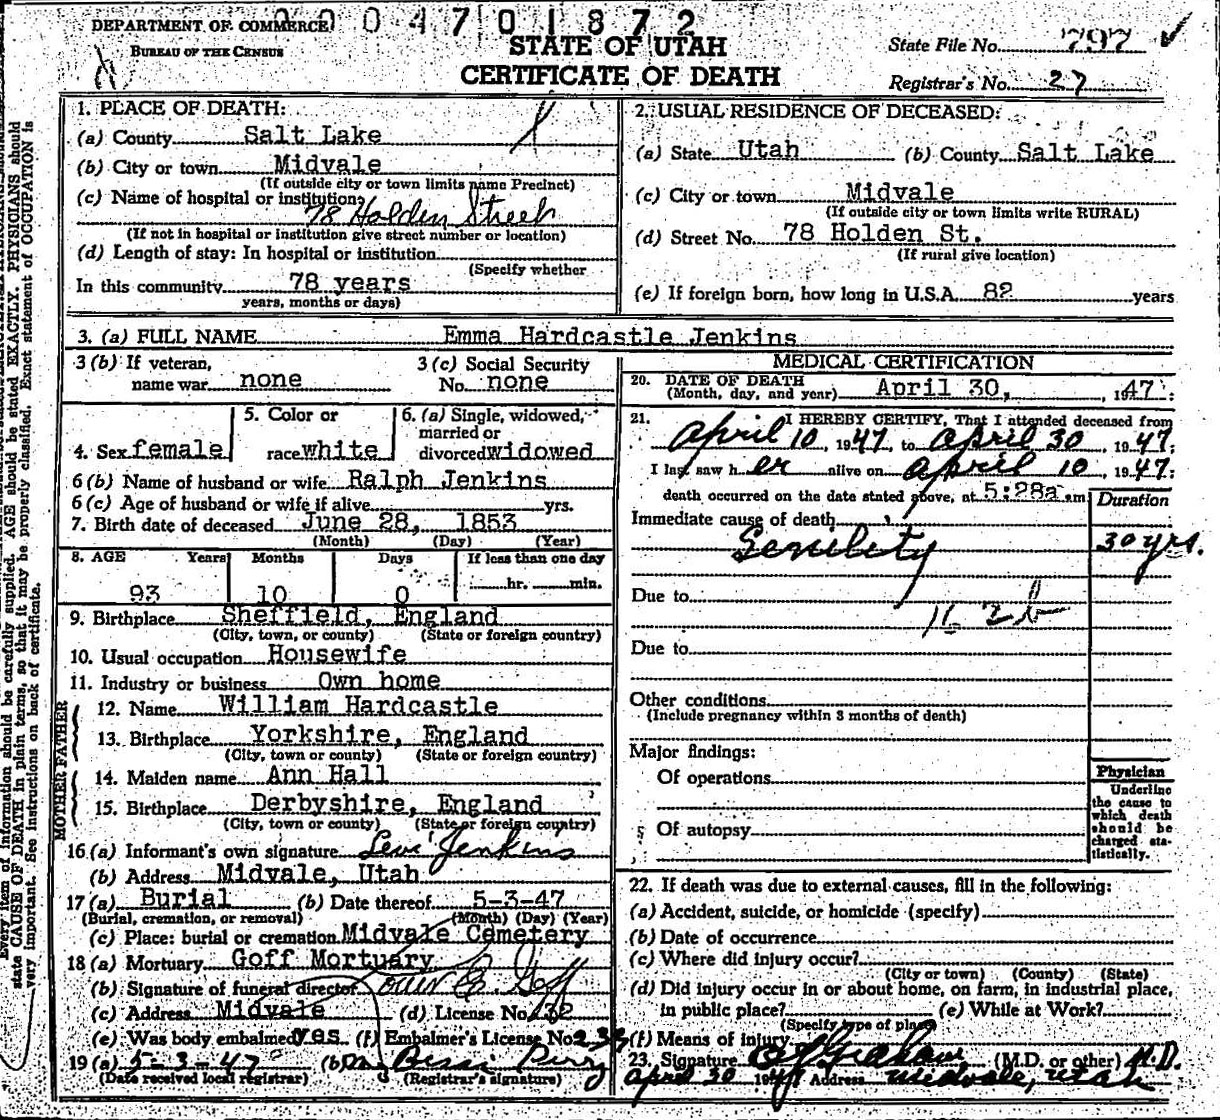 DEPARTMENT OF COMMERCE
BUREAU OF THE CENSUS
0004701872
STATE OF UTAH
CERTIFICATE OF DEATH
State File No. 797 ✓
Registrar's No. 27
1. PLACE OF DEATH:
(a) County Salt Lake
(b) City or town Midvale
(If outside city or town limits name Precinct)
(c) Name of hospital or institution:
78 Holden Street
(If not in hospital or institution give street number or location)
(d) Length of stay: In hospital or institution
(Specify whether
In this community 78 years
years, months or days)
2. USUAL RESIDENCE OF DECEASED:
(a) State Utah (b) County Salt Lake
(c) City or town Midvale
(If outside city or town limits write RURAL)
(d) Street No. 78 Holden St.
(If rural give location)
(e) If foreign born, how long in U.S.A. 82 years
3. (a) FULL NAME Emma Hardcastle Jenkins
3 (b) If veteran,
name war none
3 (c) Social Security
No. none
4. Sex female
5. Color or
race white
6. (a) Single, widowed,
married or
divorced widowed
6 (b) Name of husband or wife Ralph Jenkins
6 (c) Age of husband or wife if alive yrs.
7. Birth date of deceased June 28, 1853
(Month) (Day) (Year)
8. AGE Years Months Days If less than one day
93 10 0 hr. min.
9. Birthplace Sheffield, England
(City, town, or county) (State or foreign country)
10. Usual occupation Housewife
11. Industry or business Own home
FATHER
12. Name William Hardcastle
13. Birthplace Yorkshire, England
(City, town or county) (State or foreign country)
MOTHER
14. Maiden name Ann Hall
15. Birthplace Derbyshire, England
(City, town or county) (State or foreign country)
16 (a) Informant's own signature Levi Jenkins
(b) Address Midvale, Utah
17 (a) Burial (b) Date thereof 5-3-47
(Burial, cremation, or removal) (Month) (Day) (Year)
(c) Place: burial or cremation Midvale Cemetery
18 (a) Mortuary Goff Mortuary
(b) Signature of funeral director Goff
(c) Address Midvale (d) License No.
(e) Was body embalmed yes (f) Embalmer's License No.
19 (a) 5-3-47 (b)
(Date received local registrar) (Registrar's signature)
MEDICAL CERTIFICATION
20. DATE OF DEATH
(Month, day, and year) April 30, 1947:
21. I HEREBY CERTIFY, That I attended deceased from
April 10, 1947, to April 30, 1947;
I last saw her alive on April 10, 1947;
death occurred on the date stated above, at 5:28a m
Duration
Immediate cause of death
Senility 30 yrs.
Due to
162b
Due to
Other conditions
(Include pregnancy within 3 months of death)
Major findings:
Of operations
Of autopsy
Physician
Underline
the cause to
which death
should be
charged sta-
tistically.
22. If death was due to external causes, fill in the following:
(a) Accident, suicide, or homicide (specify)
(b) Date of occurrence
(c) Where did injury occur?
(City or town) (County) (State)
(d) Did injury occur in or about home, on farm, in industrial place,
in public place? (e) While at Work?
(Specify type of place)
(f) Means of injury
23. Signature (M.D. or other) M.D.
April 30 1947 Address Midvale, Utah
Every item of information should be carefully supplied. AGE should be stated EXACTLY. PHYSICIANS should
state CAUSE OF DEATH in plain terms, so that it may be properly classified. Exact statement of OCCUPATION is
very important. See instructions on back of certificate.